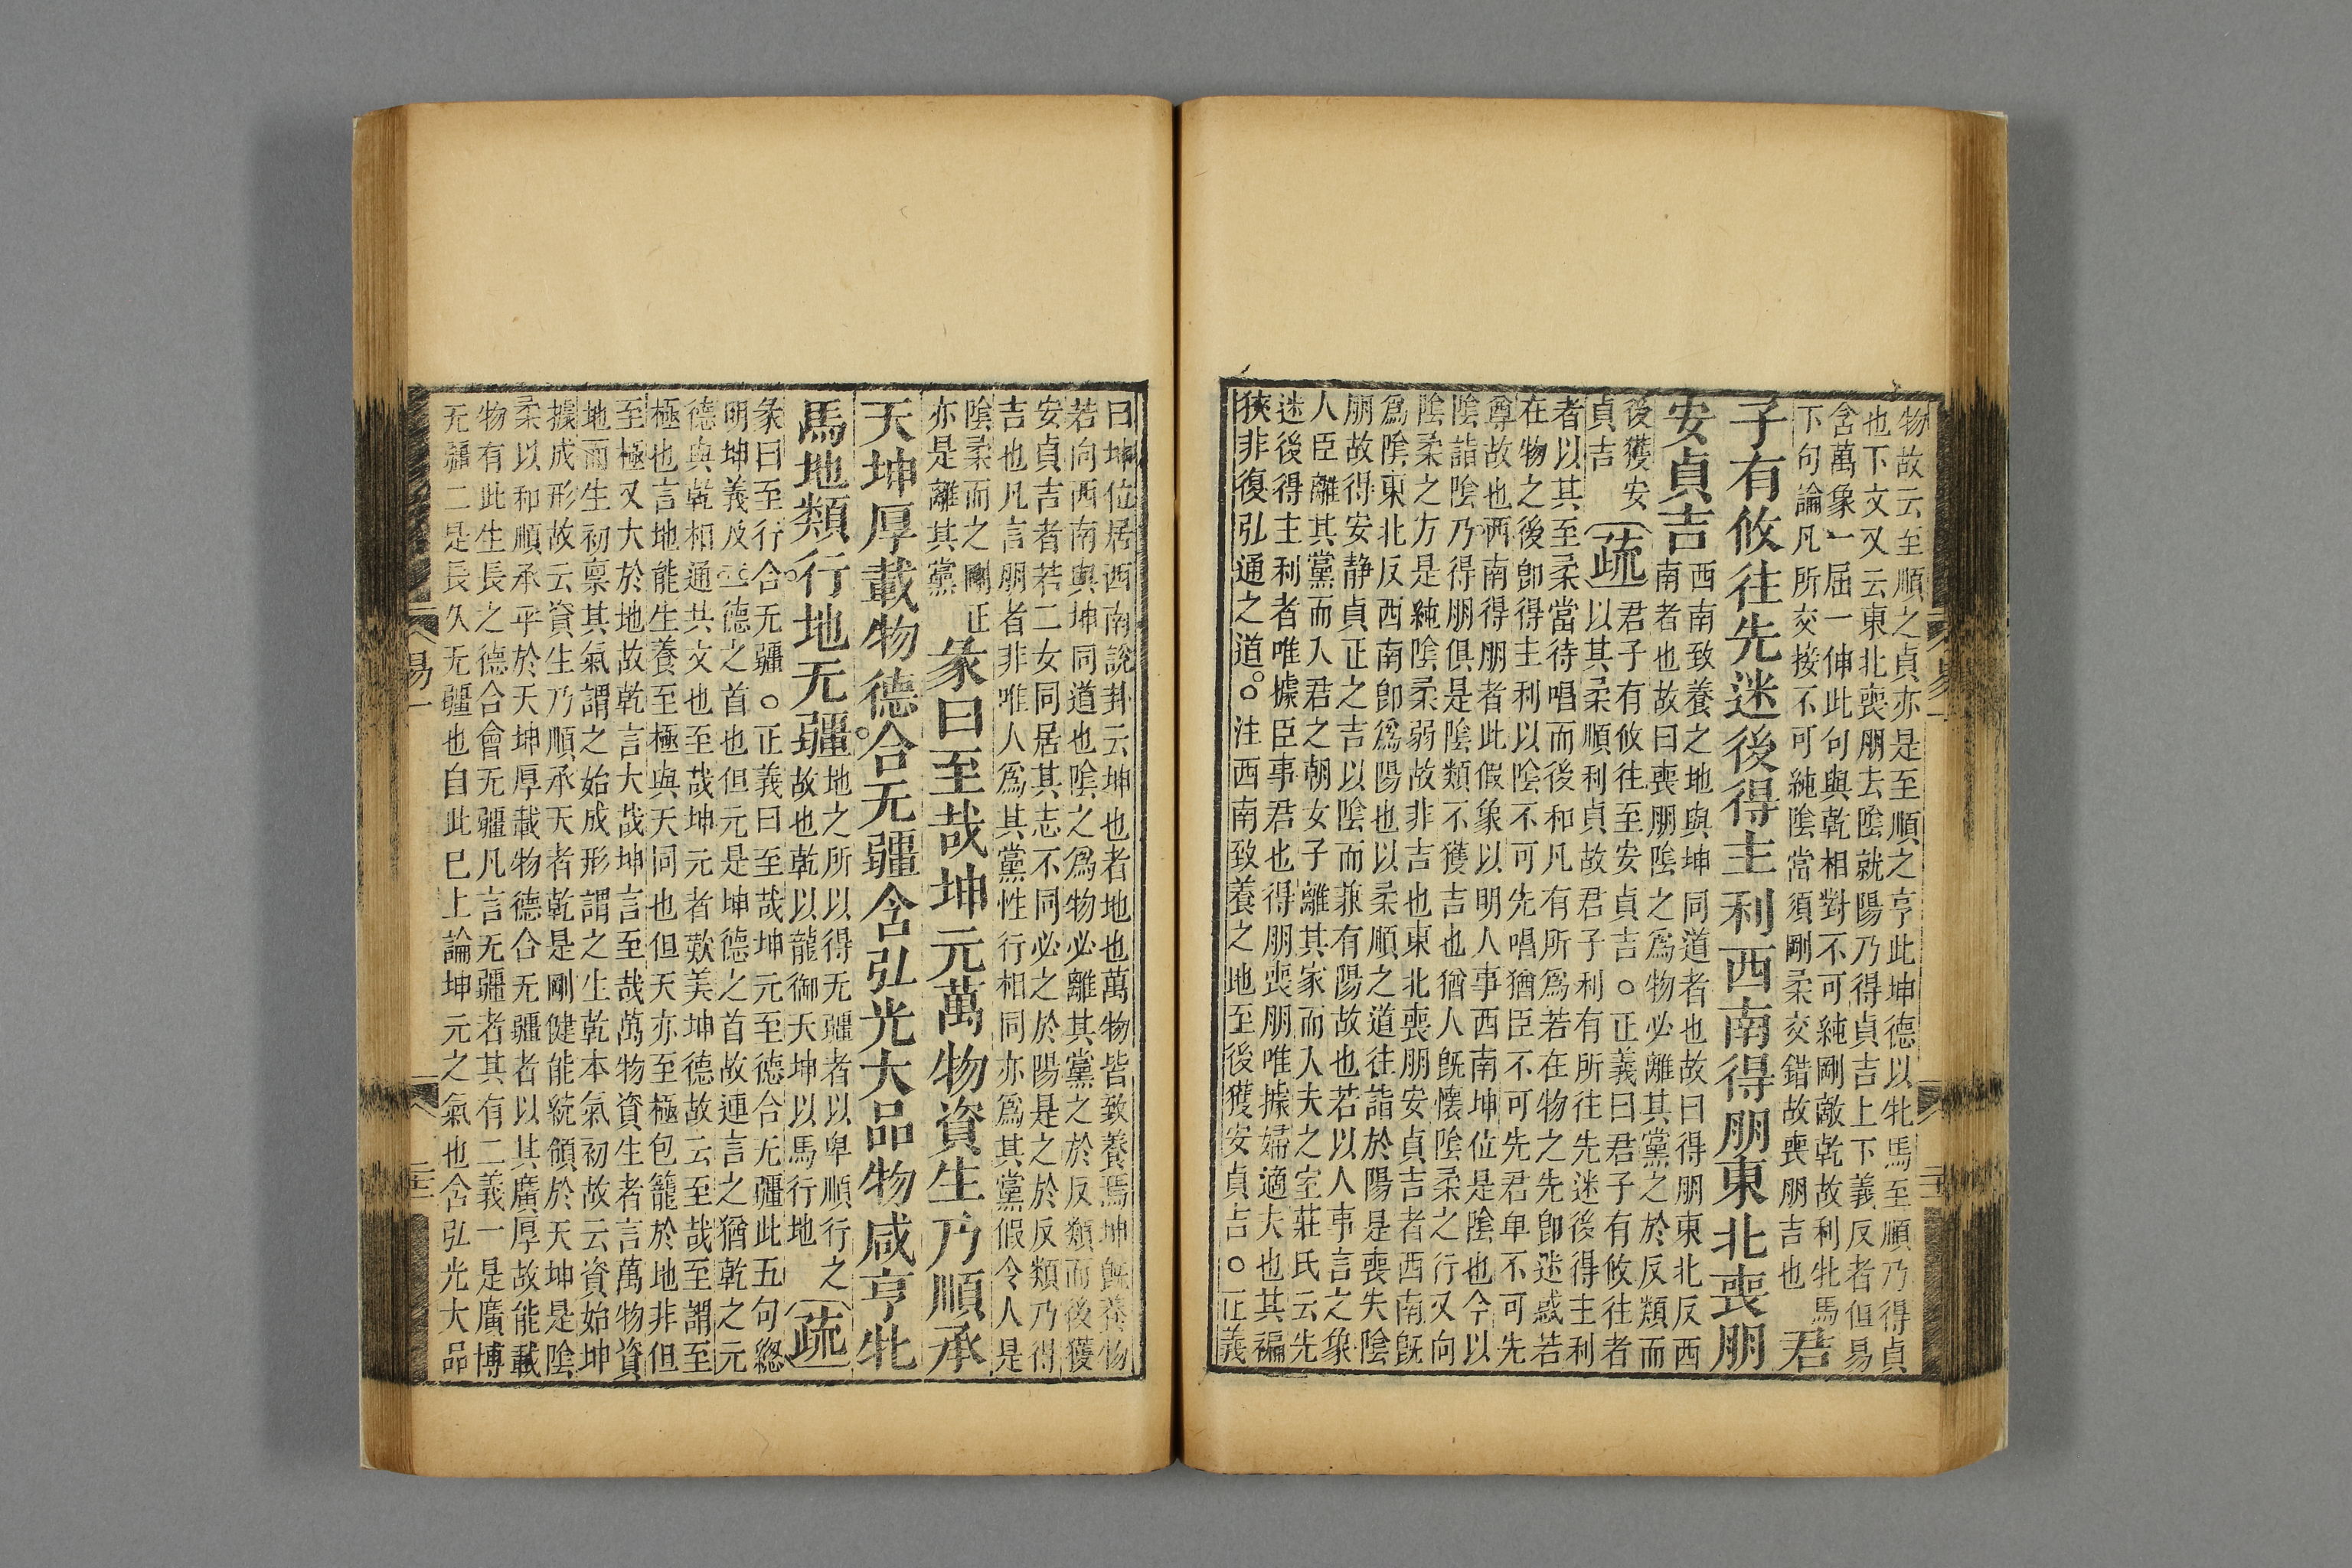 物故云至順之貞亦是至順之亨此坤德以牝馬至順乃得貞
也下文又云東北喪朋去陰就陽乃得貞吉上下義反者但易
含萬象一屈一伸此句與乾相對不可純剛敵乾故利牝馬
下句論凡所交接不可純陰當須剛柔交錯故喪朋吉也
君
子有攸往先迷後得主利西南得朋東北喪朋
安貞吉
西南致養之地與坤同道者也故曰得朋東北反西
南者也故曰喪朋陰之爲物必離其黨之於反類而
後獲安
貞吉
疏
君子有攸往至安貞吉○正義曰君子有攸往者
以其柔順利貞故君子利有所往先迷後得主利
者以其至柔當待唱而後和凡有所爲若在物之先卽迷惑若
在物之後卽得主利以陰不可先唱猶臣不可先君卑不可先
尊故也西南得朋者此假象以明人事西南坤位是陰也今以
陰詣陰乃得朋俱是陰類不獲吉也猶人旣懷陰柔之行又向
陰柔之方是純陰柔弱故非吉也東北喪朋安貞吉者西南旣
爲陰東北反西南卽爲陽也以柔順之道往詣於陽是喪失陰
朋故得安静貞正之吉以陰而兼有陽故也若以人事言之象
人臣離其黨而入君之朝女子離其家而入夫之室莊氏云先
迷後得主利者唯據臣事君也得朋喪朋唯據婦適夫也其褊
狹非復弘通之道○注西南致養之地至後獲安貞吉○正義
曰坤位居西南說卦云坤也者地也萬物皆致養焉坤旣養物
若向西南與坤同道也陰之爲物必離其黨之於反類而後獲
安貞吉者若二女同居其志不同必之於陽是之於反類乃得
吉也凡言朋者非唯人爲其黨性行相同亦爲其黨假令人是
陰柔而之剛正
亦是離其黨
彖曰至哉坤元萬物資生乃順承
天坤厚載物德合无疆含弘光大品物咸亨牝
馬地類行地无疆
地之所以得无疆者以卑順行之
故也乾以龍御天坤以馬行地
疏
彖曰至行合无疆○正義曰至哉坤元至德合无疆此五句緫
明坤義及二德之首也但元是坤德之首故連言之猶乾之元
德與乾相通共文也至哉坤元者歎美坤德故云至哉至謂至
極也言地能生養至極與天同也但天亦至極包籠於地非但
至極又大於地故乾言大哉坤言至哉萬物資生者言萬物資
地而生初稟其氣謂之始成形謂之生乾本氣初故云資始坤
據成形故云資生乃順承天者乾是剛健能統領於天坤是陰
柔以和順承平於天坤厚載物德合无疆者以其廣厚故能載
物有此生長之德合會无疆凡言无疆者其有二義一是廣博
无疆二是長久无疆也自此已上論坤元之氣也含弘光大品
易一